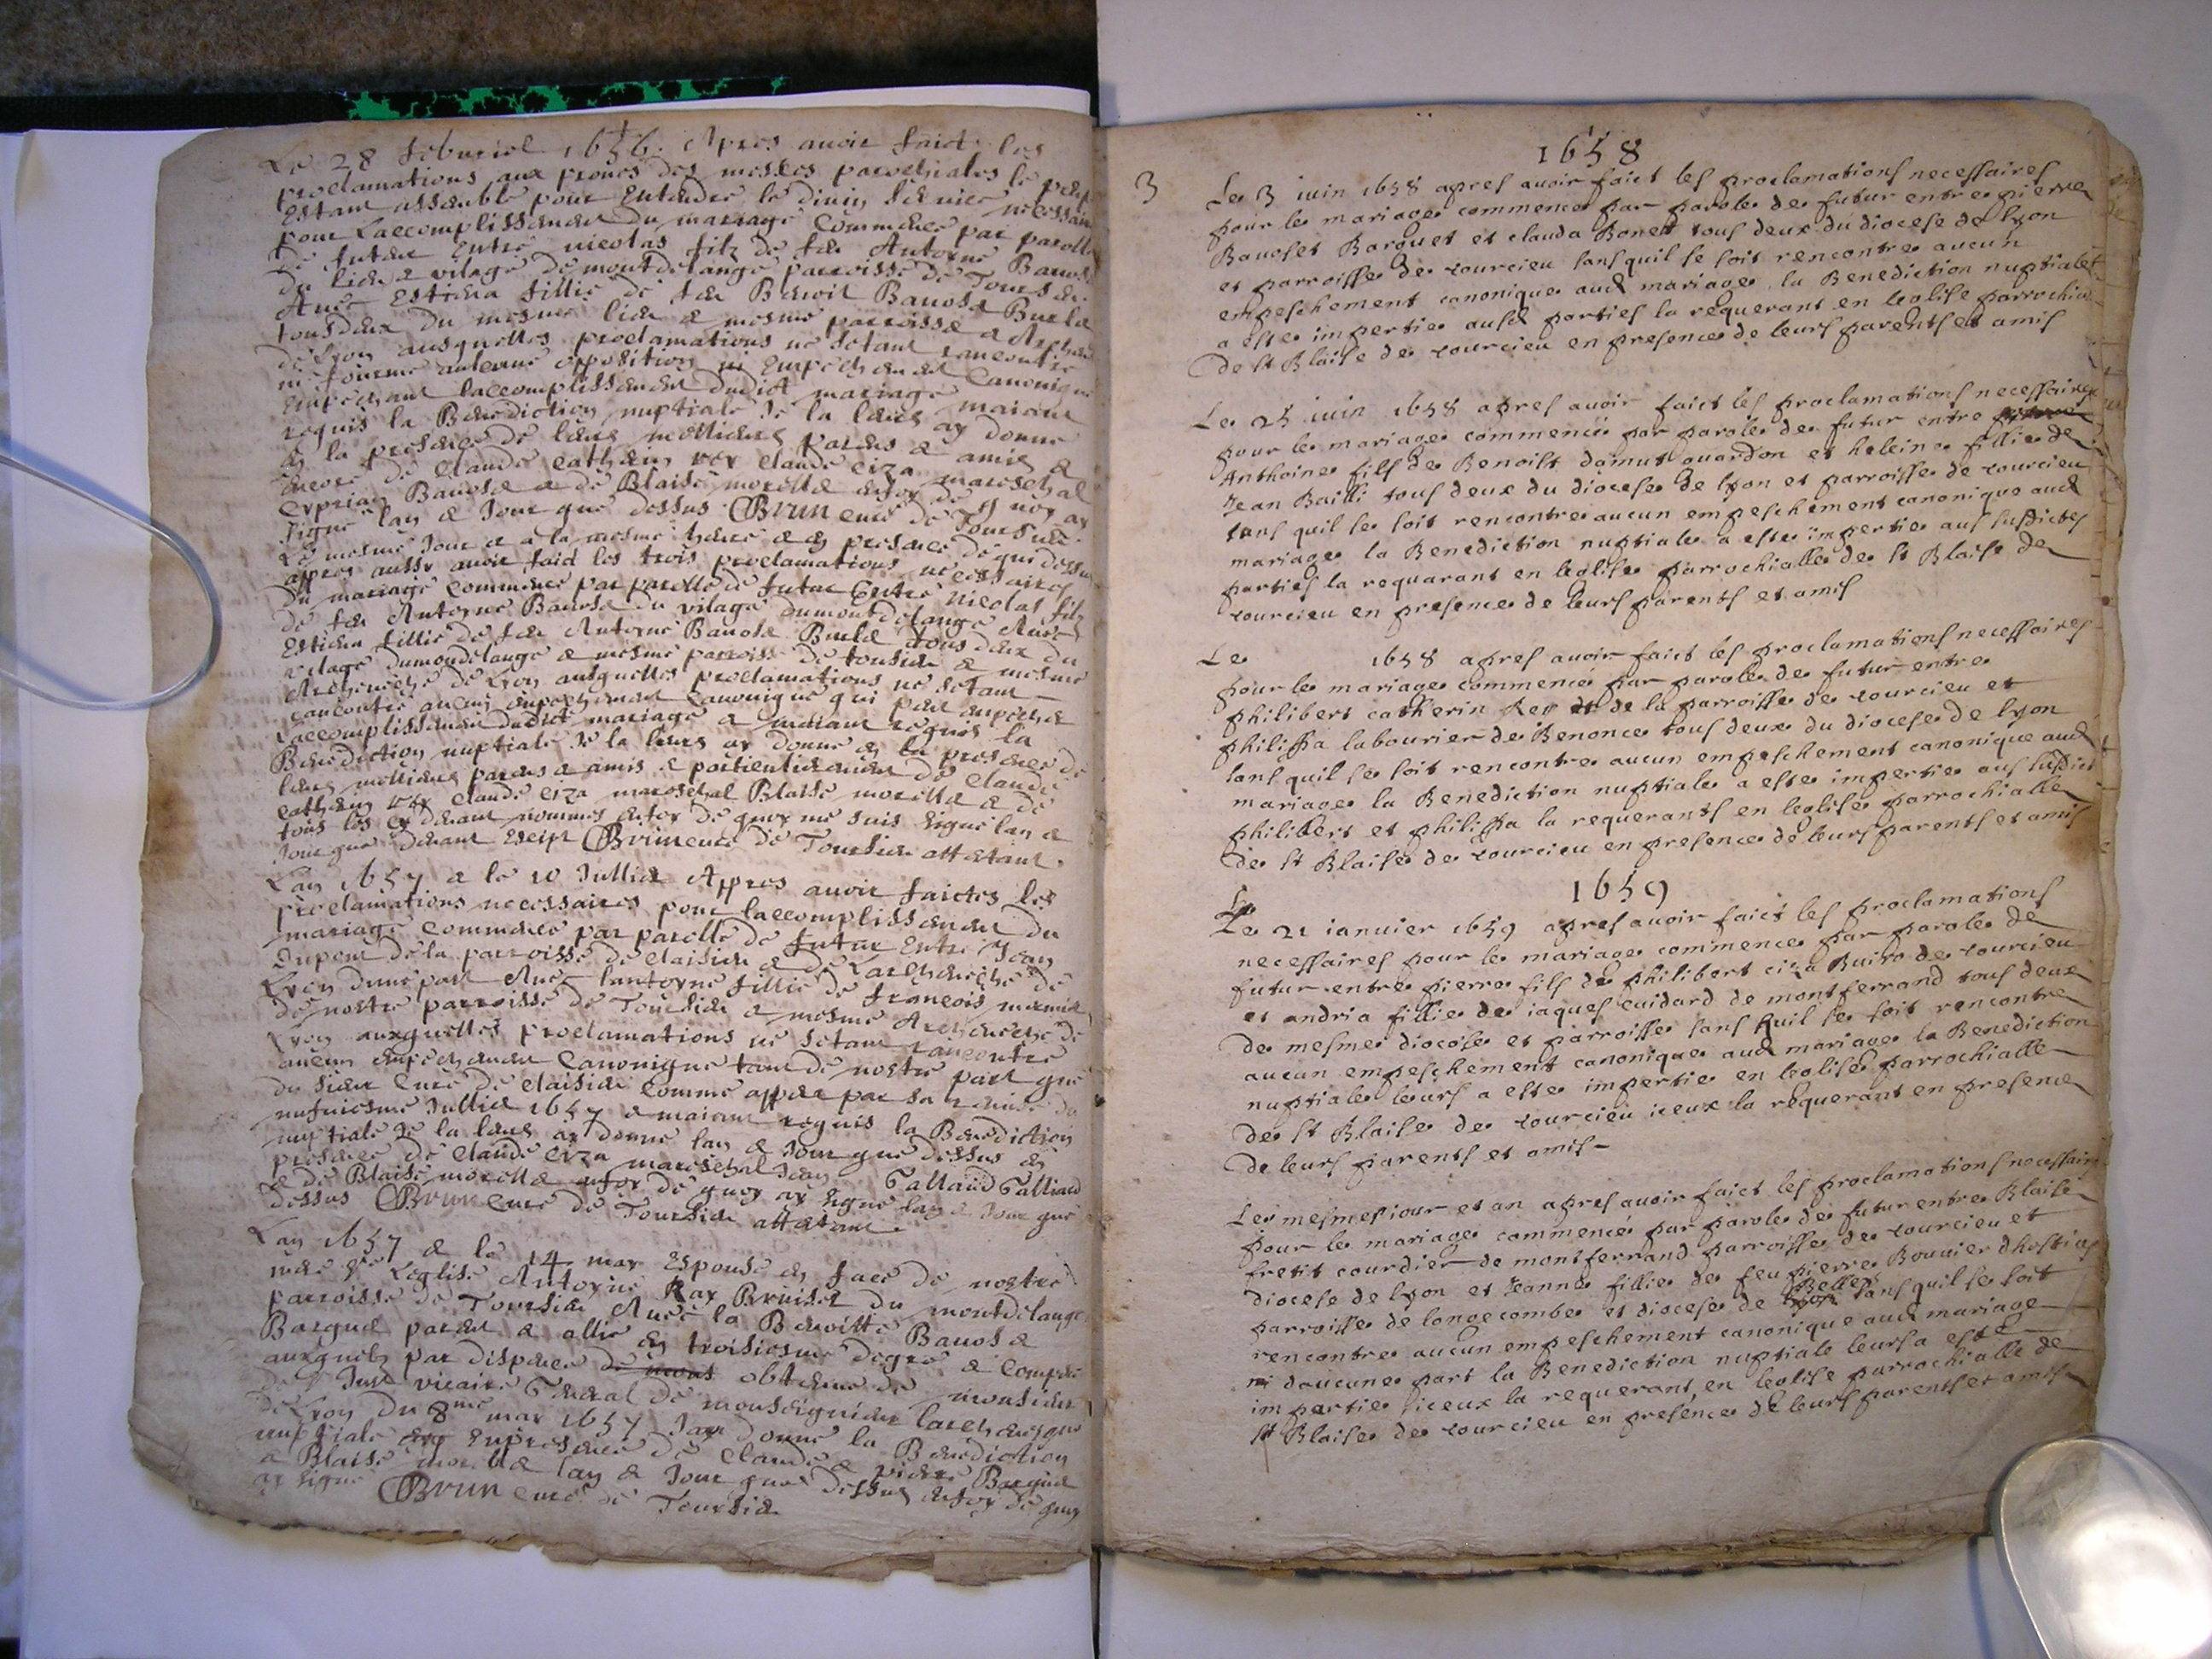 Le 28 febvriel 1656. Apres avoir faict les
proclamations aux prones des messes parochiales le peup
estant assemblé pour entendre le divin service necessaire
pour laccomplissement du mariage commence par parolle
de futur entre nicolas filz de feu Antoyne Bavos
du lieu & vilage de montdelange parroisse de Toursie
Avec Estiena fillie de feu Benoit Bavose Burle
tous deux du mesme lieu & mesme parroisse & Archev
de Lyon ausquelles proclamations ne sestant rancontre
ni fourme aulcune opposition ni empechement canonique
empechant laccomplissement dudict mariage maiant
requis la Benediction nuptiale Je la leur ay donne
en la presence de leurs meilleurs parens & amis &
encore de Claude catherin rey claude ciza mareschal
cyprian Bavose & de Blaise morelle en foy de quoy ay
signe lan & Jour que dessus Brun curé de Toursieu
Le mesme Jour & a la mesme heure & en presence de qui dessus
appres aussy avoir faict les trois proclamations necessaires
du mariage commence par parolle de futur Entre nicolas filz
de feu Antoyne Bavose du vilage dumontdelange Avec
Estiena fillie de feu Antoyne Bavose Burle tous deux du
vilage dumondelange & mesme parroisse de toursieu & mesme
Archeveche de Lyon ausquelles proclamations ne setant
rancontre aucun empechement canonique qui peut empeche
laccomplissement dudict mariage & maiant requis la
Benediction nuptiale Je la leurs ay donne en la presence de
leurs meilleurs parens & amis & particulierement de Claude
catherin rey claude ciza mareschal Blaise morelle & de
tous les cy devant nommes en foy de quoy me suis signe lan &
Jour que devant escript Brun curé de Toursieu attestant.
Lan 1657 & le 10 Jullie Appres avoir faictes les
proclamations necessaires pour laccomplissement du
mariage commence par parolle de futur Entre Jean
Dupont de la parroisse de claisieu & de Larcheveche de
Lyon dune part Avec lantoyne fillie de françois
de nostre parroisse de Toursieu & mesme Archeveche de
Lyon auxquelles proclamations ne setant rancontre
aucun empechement Canonique tant de nostre part que
du sieur curé de claisieu comme appert par sa
Jullie 1657 & maiant requis la Benediction
nuptiale Je la leurs ay donne lan & Jour que dessus en
presence de claude ciza mareschal Jean Tallaud Talliaud
& de Blaise morelle en foy de quoy ay signe lan & Jour que
dessus Brun curé de Toursieu attestant.
Lan 1657 & le 14 may Espouse en face de nostre
mere Ste Leglise Antoyne Ray Bruiset du montdelange
parroisse de Toursieu Avec la Benoitte Bavose
Barque parent & allie en troisiesme degre &
auxquelz par dispence de obtenue de monsieur
de St Just vicaire General de monseigneur larchevesque
de Lyon du 8me may 1657 Jay donne la Benediction
nuptiale en presence de Claude & pierre Barque
& Blaise morelle lan & Jour que dessus en foy de quoy
ay signe Brun curé de Toursie
1658
3
Le 3 iuin 1658 apres avoir faict les proclamations necessaires
pour le mariage commence par parole de futur entre pierre
Bavoset Barquet et clauda Bonett tous deux du diocese de lyon
et parroisse de tourcieu sans quil se soit rencontre aucun
empeschement canonique aud mariage la Benediction nuptialet
a este impertie ausd parties la requerant en leglise parrochia
de st Blaise de tourcieu en presence de leurs parents et amis
Le 25 iuin 1658 apres avoir faict les proclamations necessaires
pour le mariage commencé par parole de futur entre pierre
Anthoine fils de Benoist damut ouardon et helleine fillie de
Jean Bailli tous deux du diocese de lyon et parroisse de tourcieu
sans quil se soit rencontre aucun empeschement canonique aud
mariage la Benediction nuptiale a este impertie aus susdictes
parties la requarant en leglise parrochialle de st Blaise de
tourcieu en presence de leurs parents et amis
Le 1658 apres avoir faict les proclamations necessaires
pour le mariage commencé par parole de futur entre
philibert catherin Rey de la parroisse de tourcieu et
philippa labourier de Benonce tous deux du diocese de lyon
sans quil se soit rencontre aucun empeschement canonique aud
mariage la Benediction nuptiale a este impertie aus susdict
philibert et philippa la requerants en leglise parrochialle
de st Blaise de tourcieu en presence de leurs parents et amis
1659
Le
Le 21 ianvier 1659 apres avoir faict les proclamations
necessaires pour le mariage commence par parole de
futur entre pierre fils de philibert ciza Buiro de tourcieu
et andria fillie de iaques cuidard de montferrand tous deux
de mesme diocese et parroisse sans quil se soit rencontre
aucun empeschement canonique aud mariage la Benediction
nuptiale leurs a este impertie en leglise parrochialle
de st Blaise de tourcieu iceux la requerant en presence
de leurs parents et amis
Les mesmes iour et an apres avoir faict les proclamations necessaire
pour le mariage commencé par parole de futur entre Blaise
fretit courdier de montferrand parroisse de tourcieu et
diocese de lyon et Jeanne fillie de feu pierre Bouvier dhosties
parroisse de longecombe et diocese de lyon Belley sans quil se soit
rencontre aucun empeschement canonique aud mariage
ni daucune part la Benediction nuptiale leurs a esté
impartie iceux la requerant en leglise parrochialle de
st Blaise de tourcieu en presence de leurs parents et amis